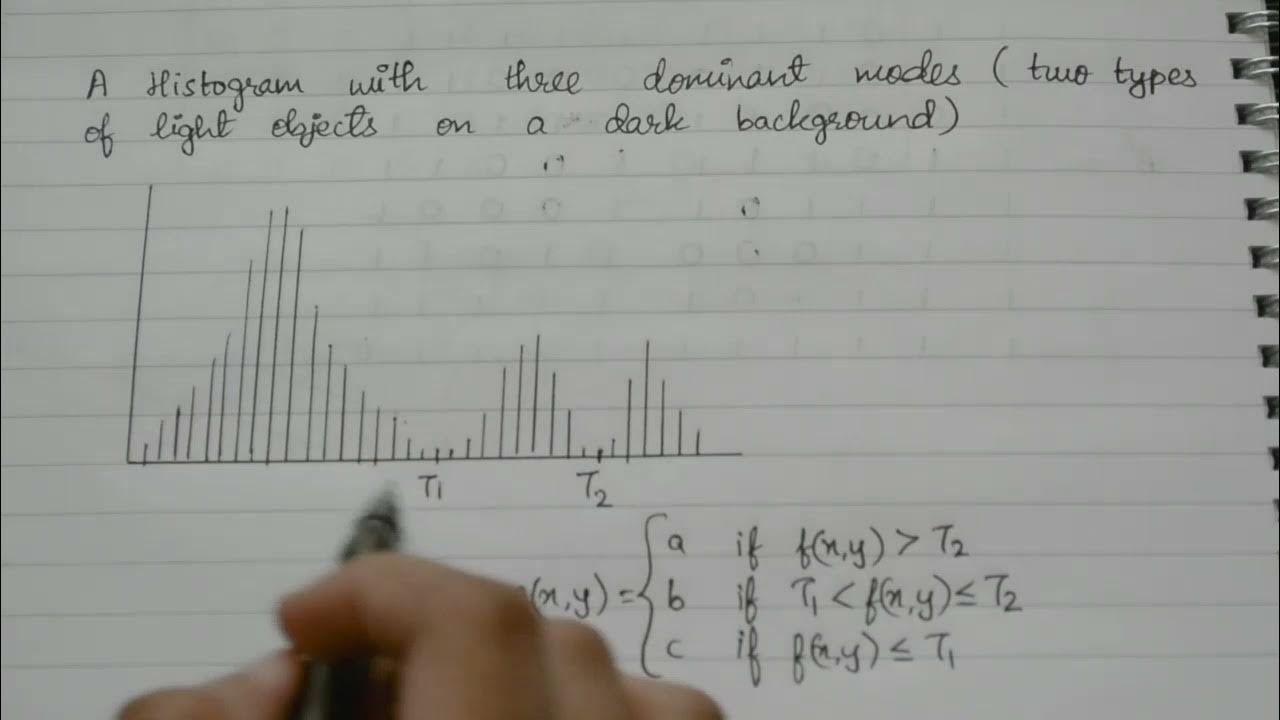 A Histogram with three dominant modes ( two types
of light objects on a dark background)
T1
T2
(x,y) = { a if f(x,y) > T2
b if T1 < f(x,y) ≤ T2
c if f(x,y) ≤ T1